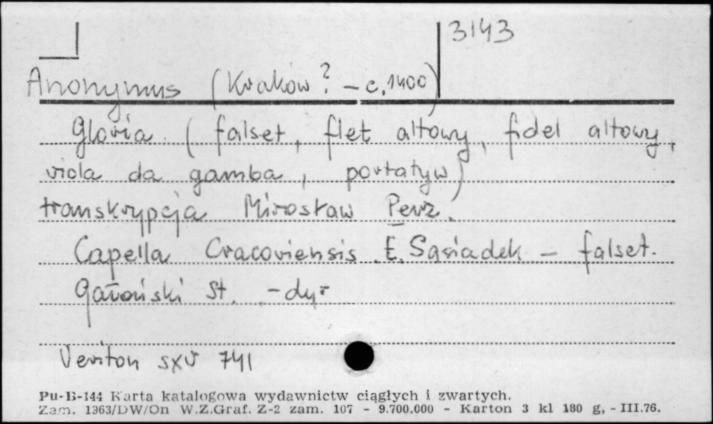 3143
Anonymus (Kraków? - c. 1400)
Gloria (falset, flet altowy, fidel altowy,
viola da gamba, portatyw)
transkrypcja Mirosław Perz.
Capella Cracoviensis. E. Sąsiadek - falset.
Gałoński St. - dyr
Veriton SXV 741
Pu-B-144 Karta katalogowa wydawnictw ciągłych i zwartych.
Zam. 1363/DW/On W.Z.Graf. Z-2 zam. 107 - 9.700.000 - Karton 3 kl 180 g, - III.76.